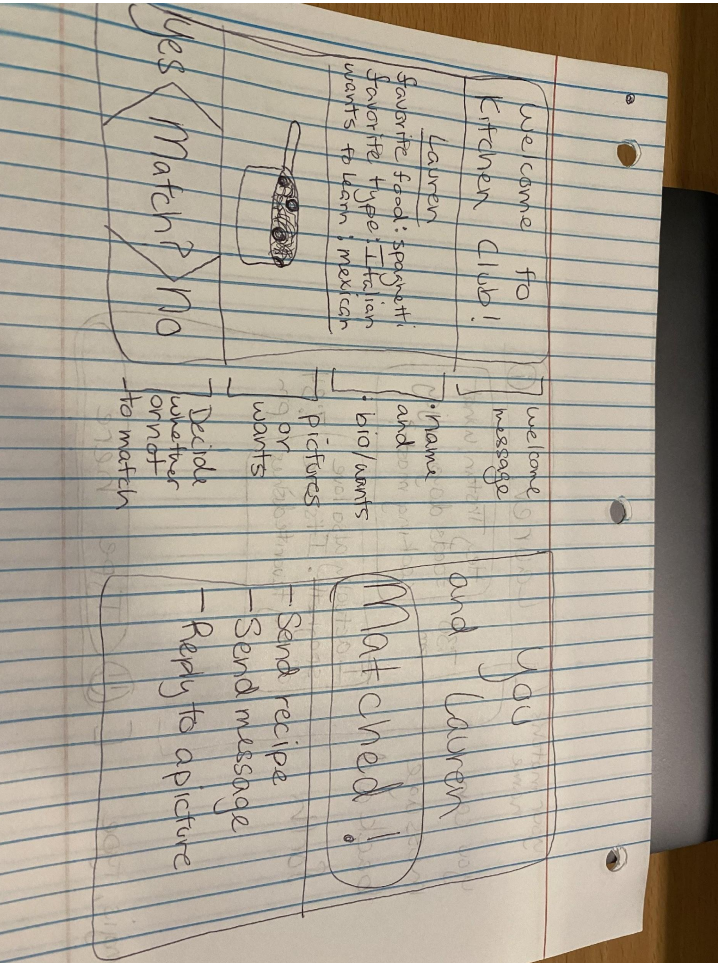 Welcome to
Kitchen Club!
Lauren
favorite food: spaghetti
favorite type: Italian
wants to learn: mexican
Yes < Match? > No
welcome
message
• name
and
• bio/wants
pictures
or
wants
Decide
whether
or not
to match
You
and Lauren
Matched!
- Send recipe
- Send message
- Reply to a picture